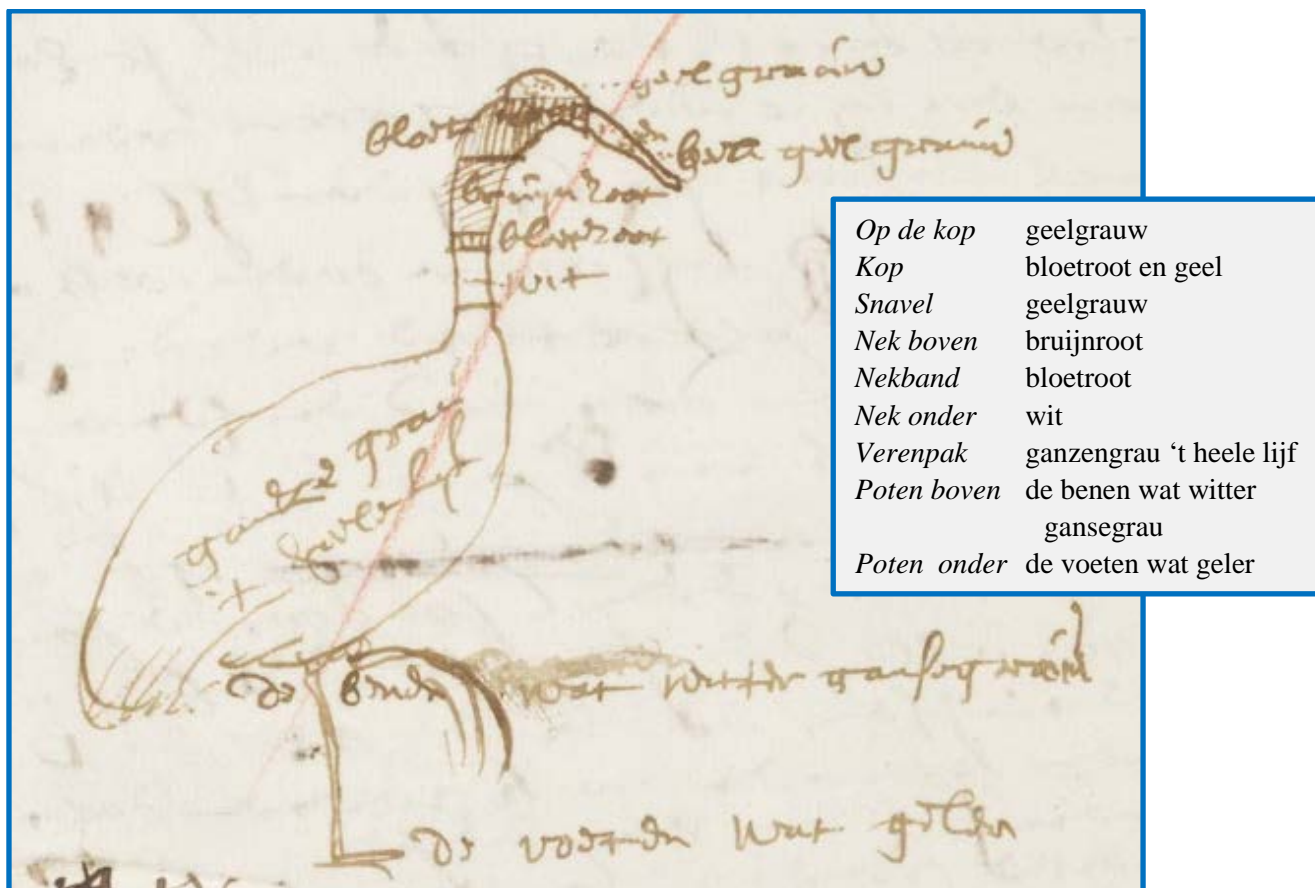 geel grauw
bloet
geel grauw
bruijn root
bloet root
wit
't heele lijf
de benen wat witter
de voeten wat geler
Op de kop geelgrauw
Kop bloetroot en geel
Snavel geelgrauw
Nek boven bruijnroot
Nekband bloetroot
Nek onder wit
Verenpak ganzengrau ‘t heele lijf
Poten boven de benen wat witter
gansegrau
Poten onder de voeten wat geler